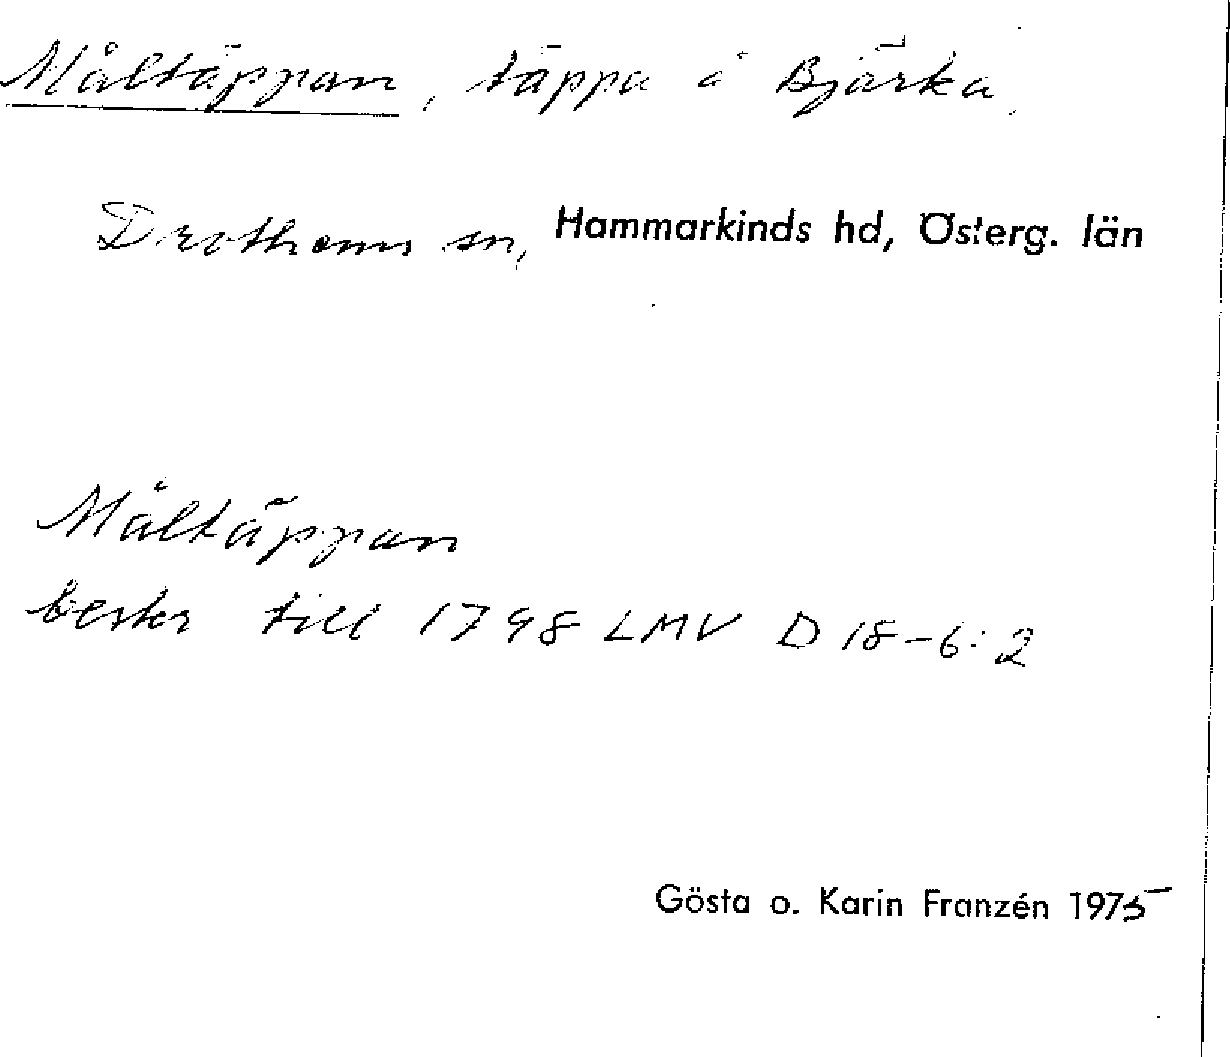 Måltäppan, täppa å Bjärka.
Drothems sn, Hammarkinds hd, Österg. län
Måltäppan
beskr till 1798 LMV D 18-6:2
Gösta o. Karin Franzén 1975